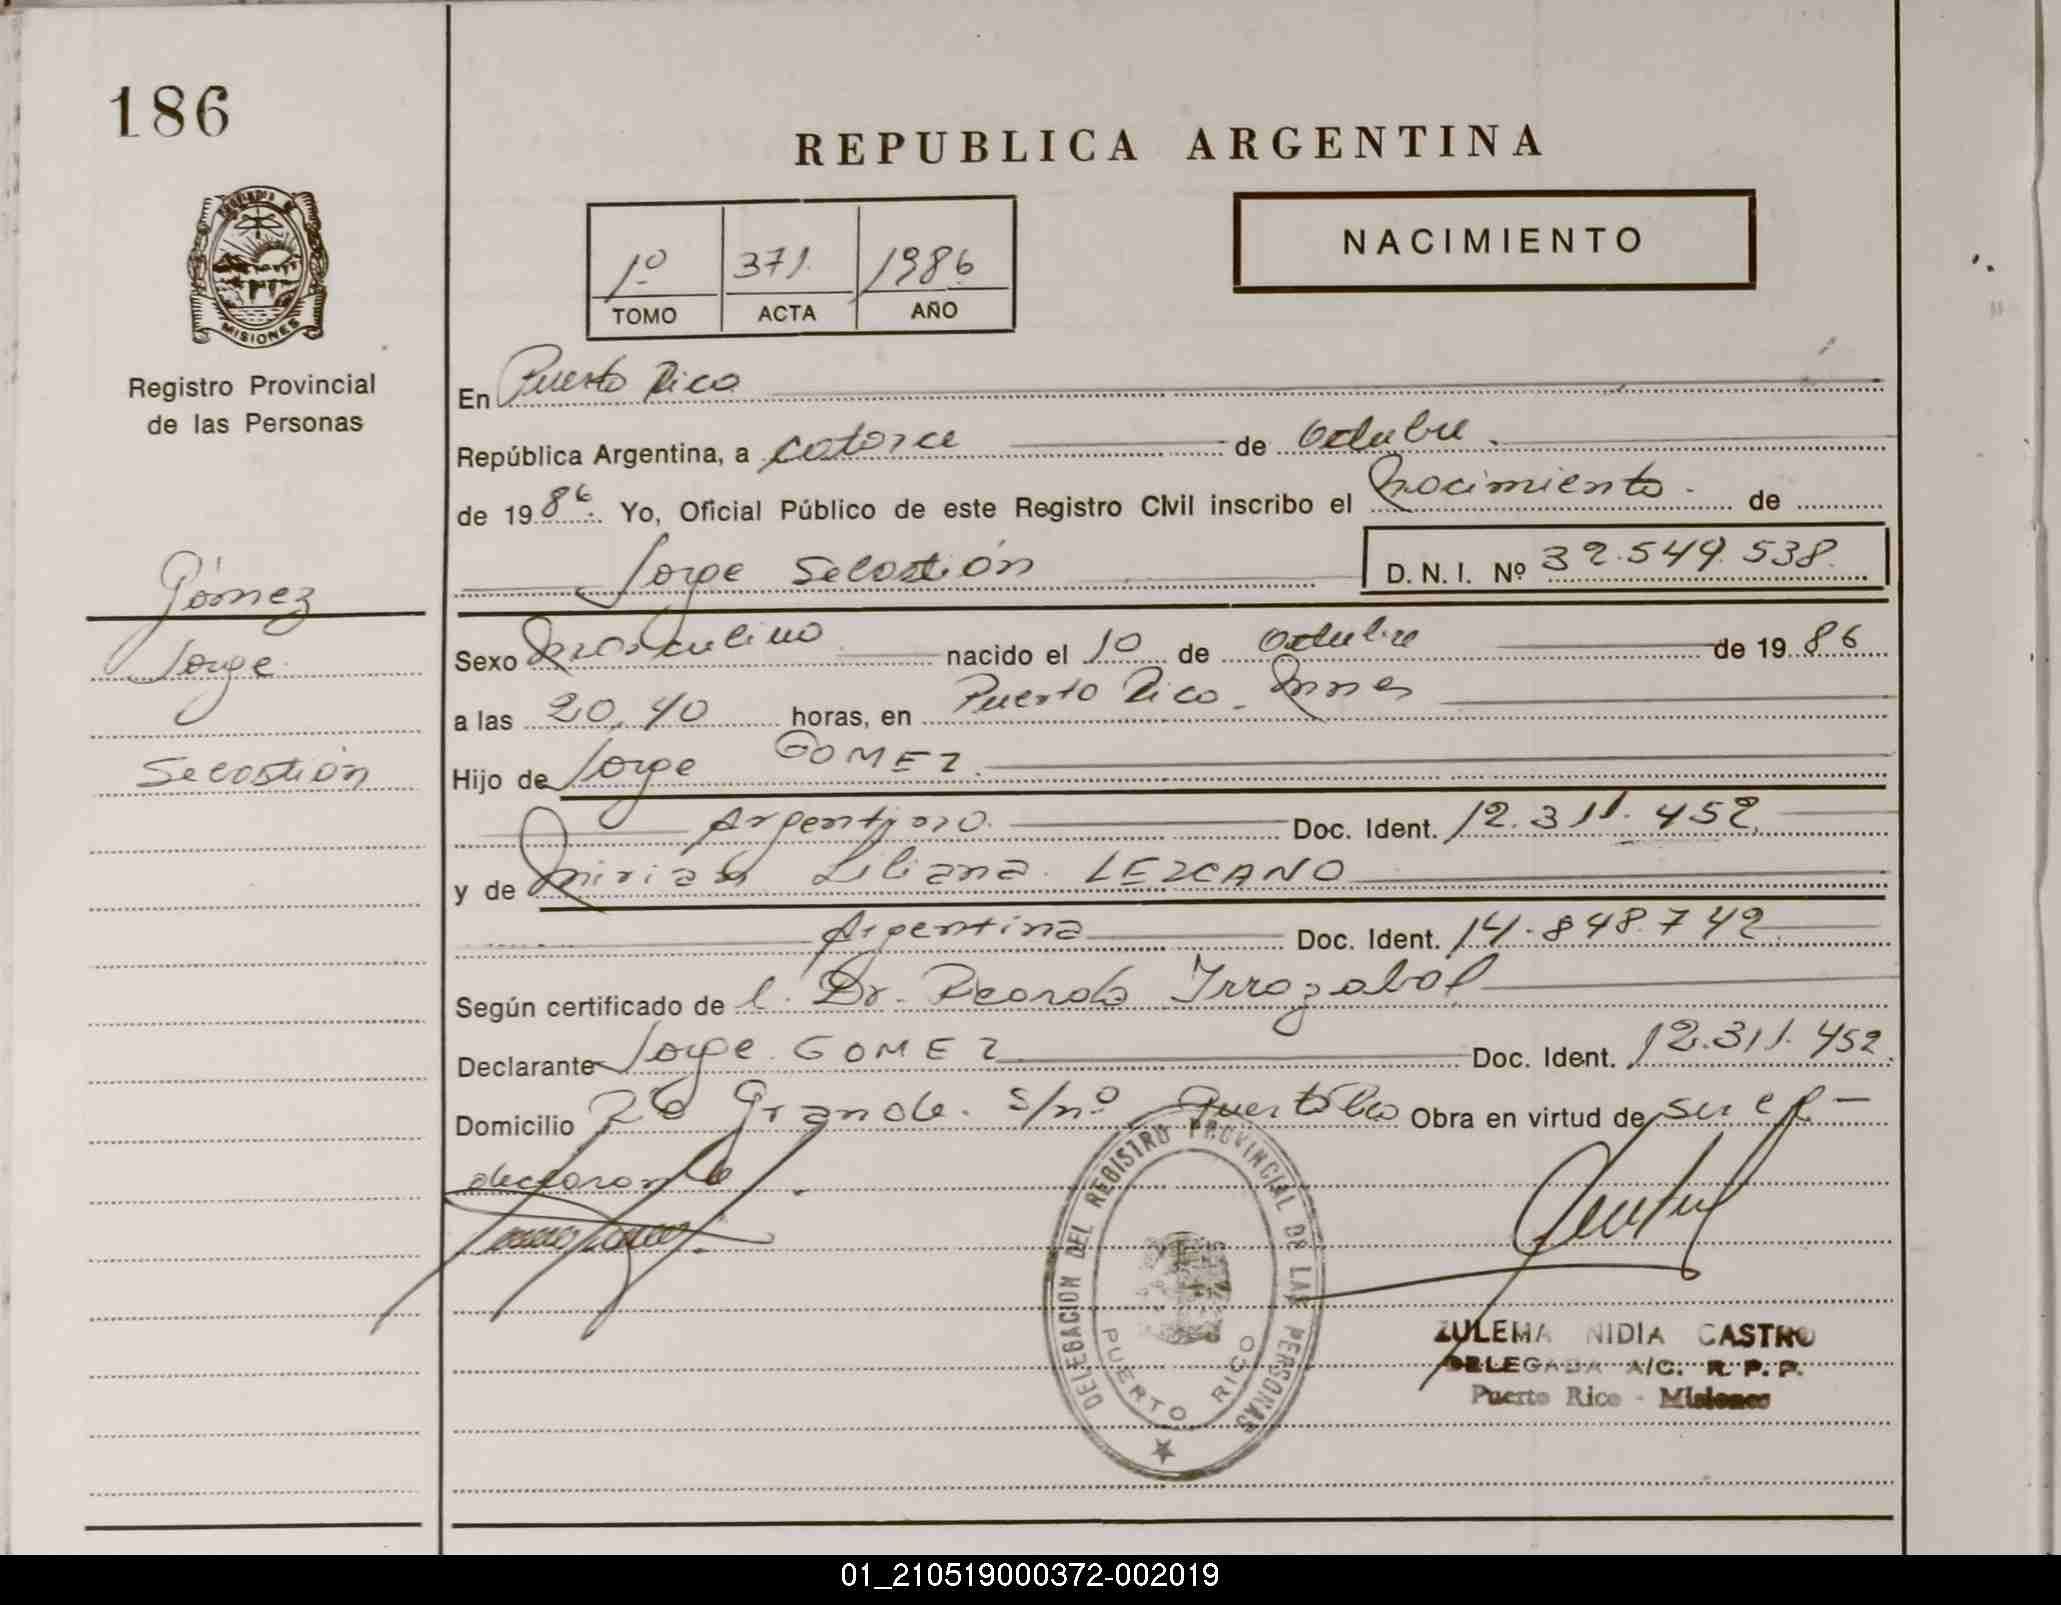 186
REPUBLICA ARGENTINA
NACIMIENTO
1º 371. 1986
TOMO ACTA AÑO
MISIONES
Registro Provincial
de las Personas
Gómez
Jorge
Sebastián
En Puerto Rico
República Argentina, a catorce de Octubre.
de 19 86. Yo, Oficial Público de este Registro Civil inscribo el Nacimiento. de
Jorge Sebastián D. N. I. Nº 32.549.538.
Sexo Masculino nacido el 10 de Octubre de 19 86
a las 20,40 horas, en Puerto Rico. Mnes
Hijo de Jorge GOMEZ.
Argentino. Doc. Ident. 12.311.452.
y de Miriam Liliana LEZCANO
Argentina Doc. Ident. 14.848.742
Según certificado de l. Dr. Ricardo Irrazabal
Declarante Jorge GOMEZ Doc. Ident. 12.311.452.
Domicilio Rº Grande. s/nº Puerto Rico Obra en virtud de ser el
declarante.
DELEGACION DEL REGISTRO PROVINCIAL DE LAS PERSONAS
PUERTO RICO
ZULEMA NIDIA CASTRO
DELEGADA A/C. R. P. P.
Puerto Rico - Misiones
01_210519000372-002019